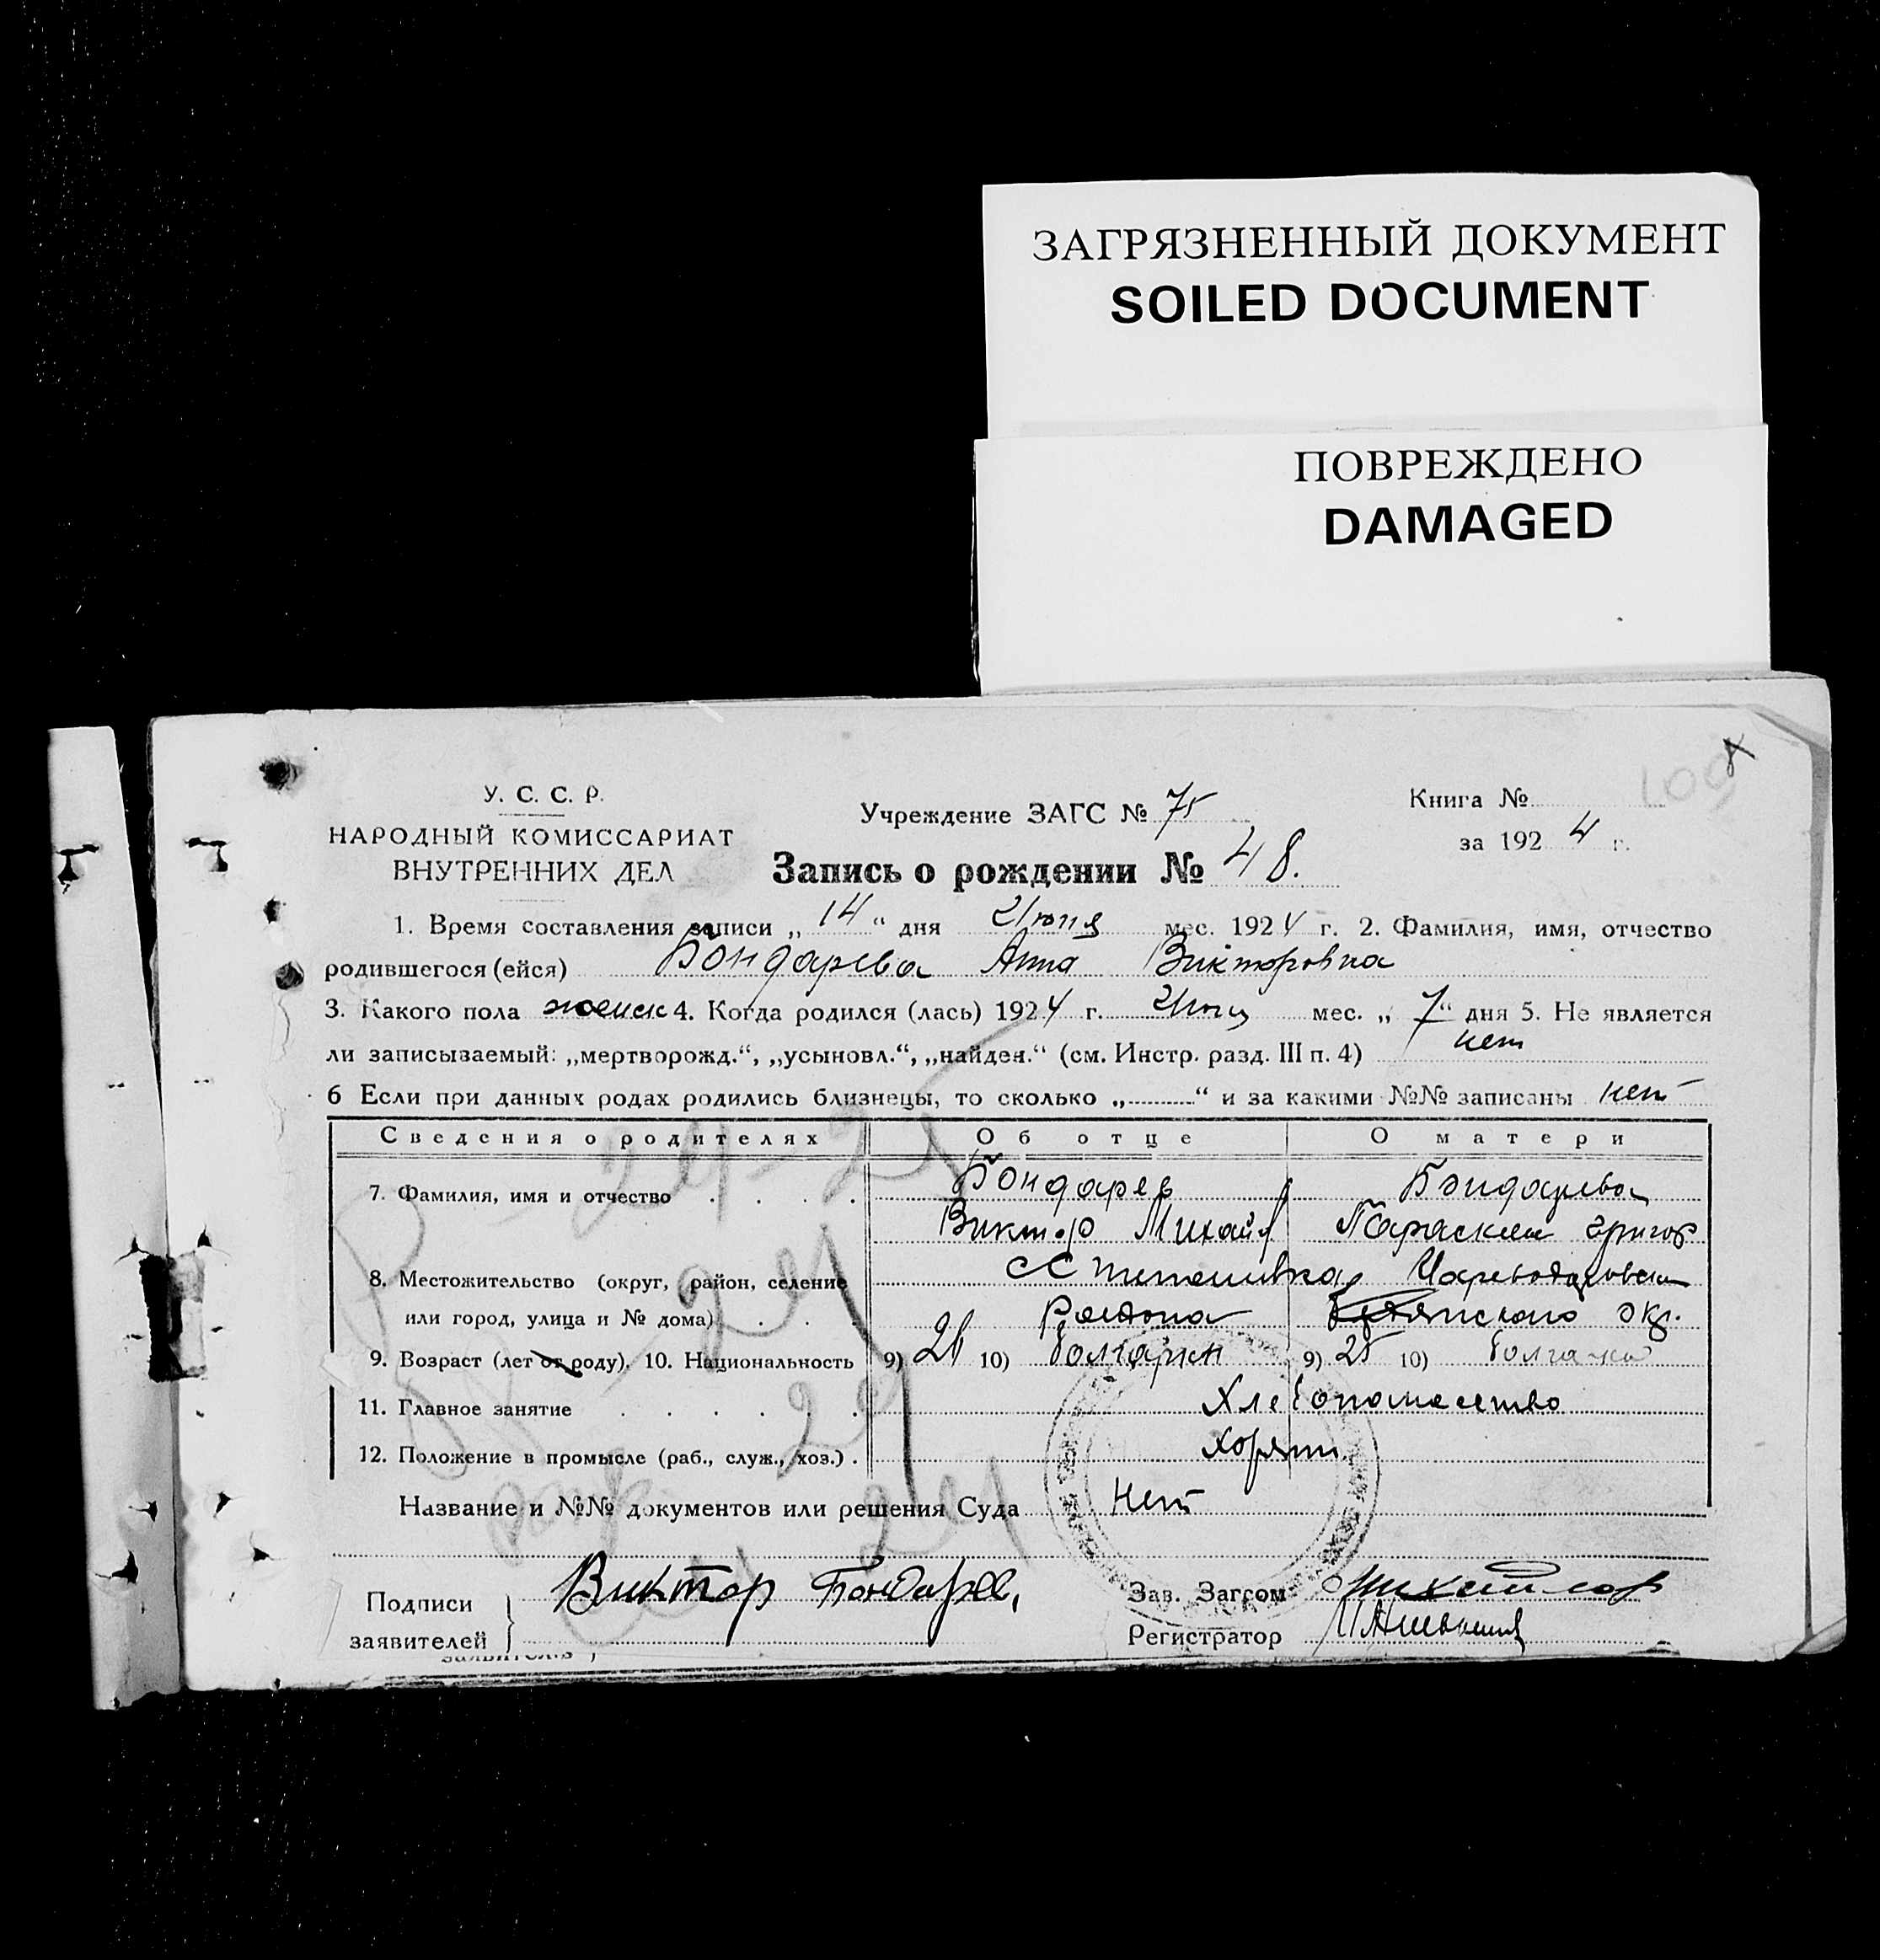 ЗАГРЯЗНЕННЫЙ ДОКУМЕНТ
SOILED DOCUMENT
ПОВРЕЖДЕНО
DAMAGED
У. С. С. Р.
НАРОДНЫЙ КОМИССАРИАТ
ВНУТРЕННИХ ДЕЛ
Учреждение ЗАГС № 75
Книга №
за 1924 г.
Запись о рождении № 48.
1. Время составления записи „ 14 “ дня Июня мес. 1924 г. 2. Фамилия, имя, отчество
родившегося (ейся) Бондарева Анна Викторовна
3. Какого пола женск 4. Когда родился (лась) 1924 г. мес. „ 7 “ дня 5. Не является
ли записываемый: „мертворожд.“, „усыновл.“, „найден.“ (см. Инстр. разд. III п. 4) нет
6 Если при данных родах родились близнецы, то сколько „ “ и за какими №№ записаны нет
Сведения о родителях Об отце О матери
7. Фамилия, имя и отчество Бондарев Бондарева
Виктор Михайл Параскева Григор
8. Местожительство (округ, район, селение
или город, улица и № дома) Района окр.
9. Возраст (лет от роду). 10. Национальность 9) 10) болгарин 9) 25 10) болгарка
11. Главное занятие Хлебопашество
12. Положение в промысле (раб., служ., хоз.) .
Название и №№ документов или решения Суда Нет
Подписи
заявителей
Виктор Бондарев,
Зав. Загсом
Регистратор